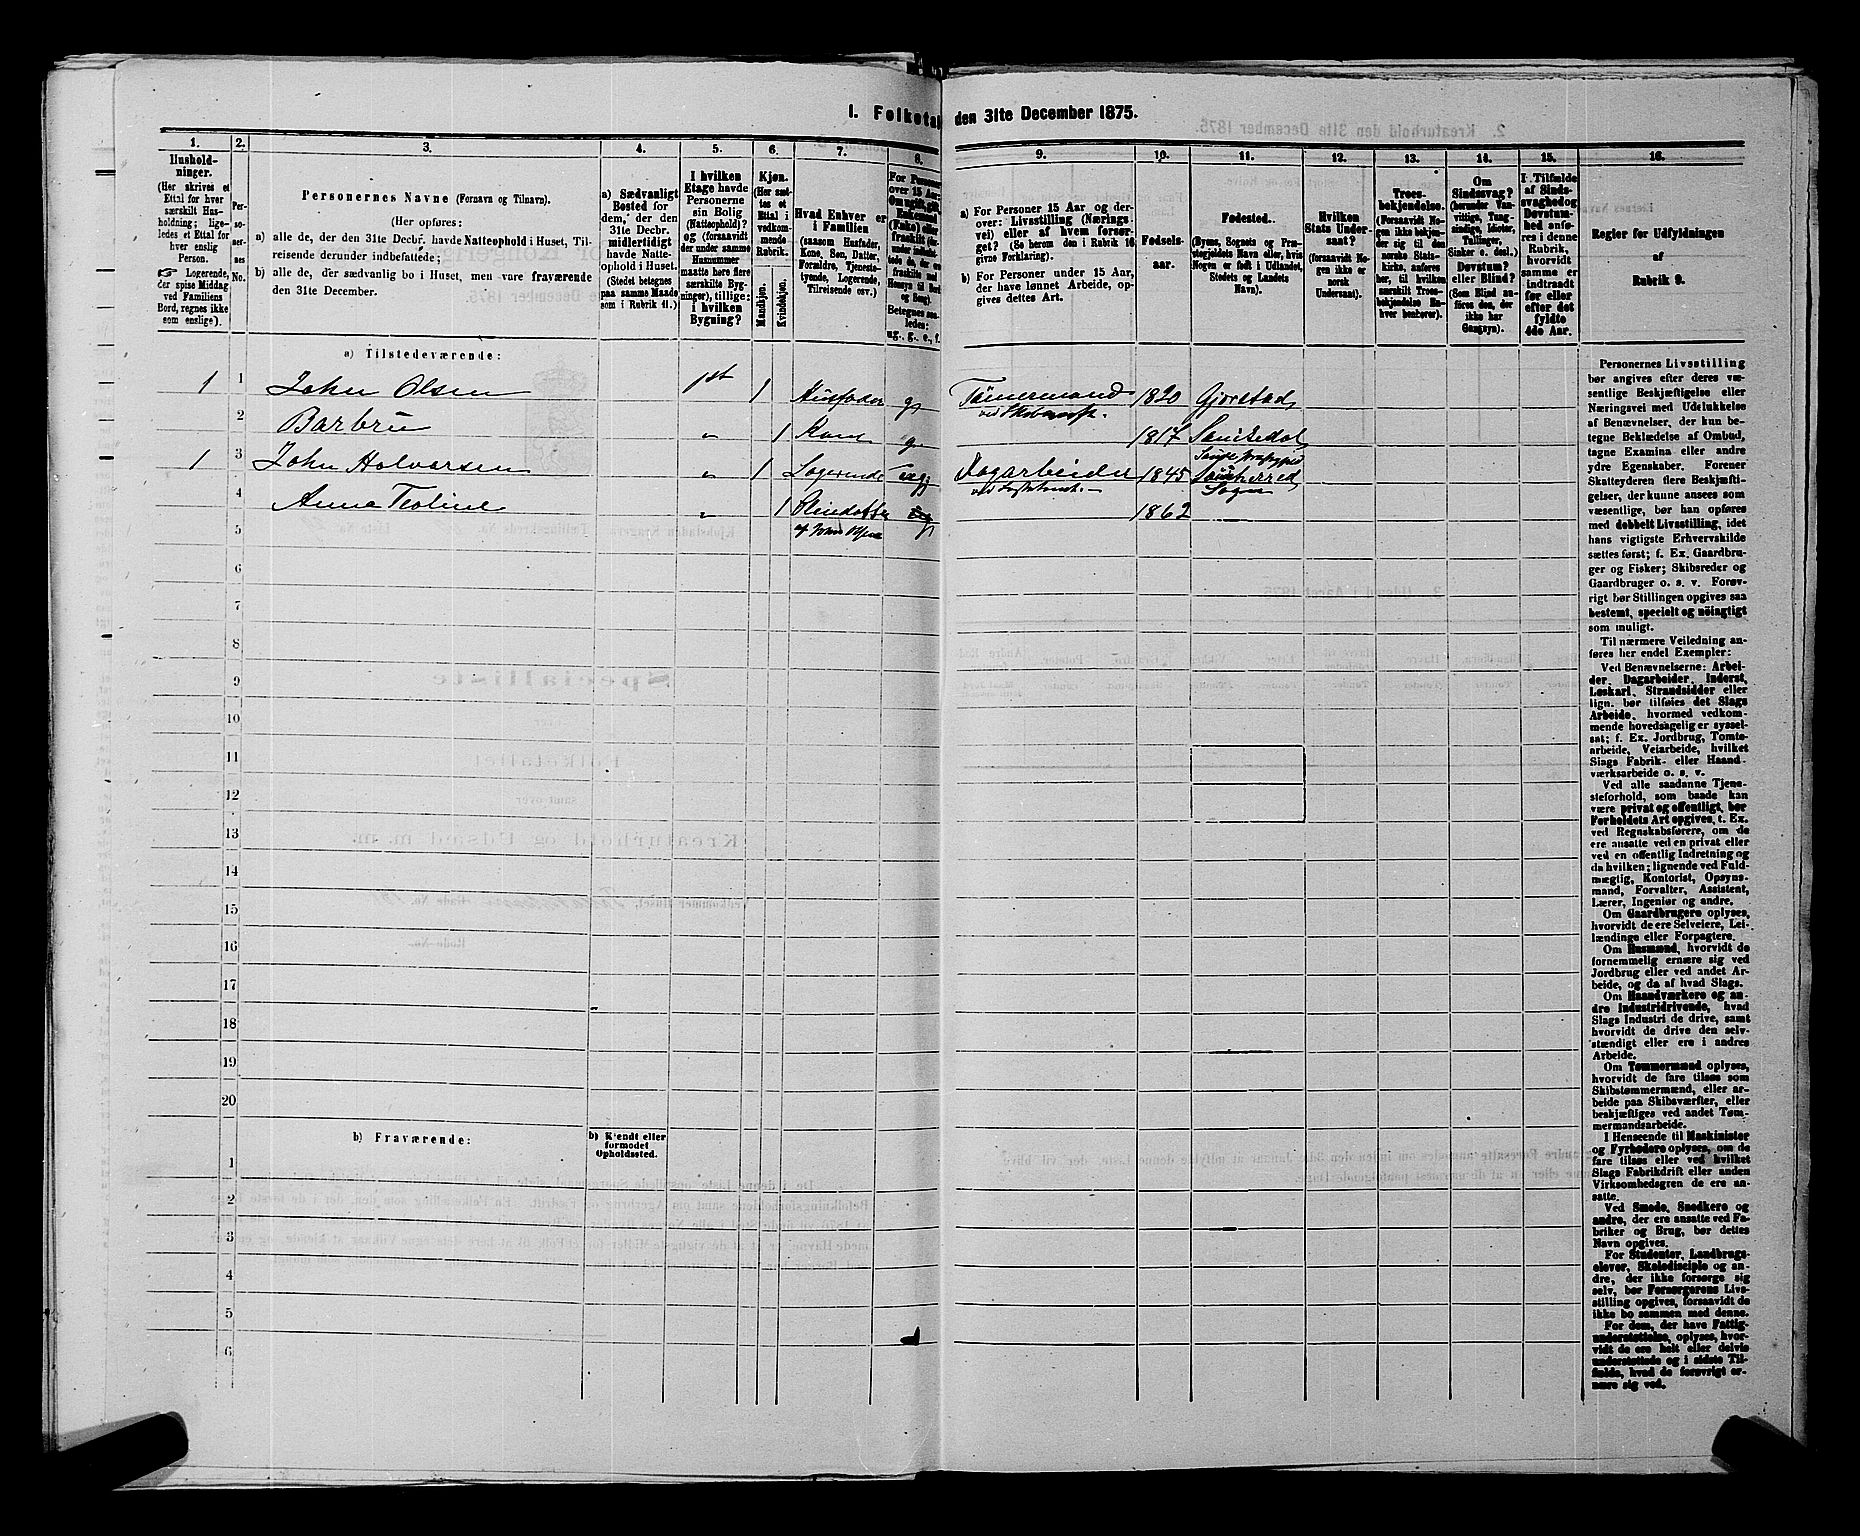 1. Folketal den 31te December 1875.
1.
2.
3.
4.
5.
6.
7.
8.
9.
10.
11.
12.
13.
14.
15.
16.
Hushold-
ninger.
(Her skrives et
Ettal for hver
særskilt Hus-
holdning; lige-
ledes et Ettal for
hver enslig
Person.
☞ Logerende,
der spise Middag
ved Familiens
Bord, regnes ikke
som enslige).
Per-
so-
ner-
nes
No.
Personernes Navne (Fornavn og Tilnavn).
(Her opføres:
a) alle de, der den 31te Decbr. havde Natteophold i Huset, Til-
reisende derunder indbefattede;
b) alle de, der sædvanlig bo i Huset, men vare fraværende
den 31te December.
a) Sædvanligt
Bosted for
dem, der den
31te Decbr.
midlertidigt
havde Natte-
ophold i Huset.
(Stedet betegnes
paa samme Maade
som i Rubrik 11.)
I hvilken
Etage havde
Personerne
sin Bolig
(Natteophold)?
og (forsaavidt
der under samme
Husnummer
maatte høre flere
særskilte Byg-
ninger), tillige:
i hvilken
Bygning?
Kjøn.
(Her sæt-
tes et
Ettal i
vedkom-
mende
Rubrik.
Mandkjøn.
Kvindekjøn.
Hvad Enhver er
i Familien
(saasom Husfader,
Kone, Søn, Datter,
Forældre, Tjeneste-
tyende, Logerende,
Tilreisende osv.)
For Personer
over 15 Aar:
Om ugift, gift,
Enkemand
(Enke) eller
fraskilt
Betegnes saa-
ledes:
ug., g., e., f.
a) For Personer 15 Aar og der-
over: Livsstilling (Nærings-
vei) eller af hvem forsør-
get? (Se herom den i Rubrik 16
givne Forklaring).
b) For Personer under 15 Aar,
der have lønnet Arbeide, op-
gives dettes Art.
Fødsels-
aar.
Fødested.
(Byens, Sognets og Præ-
stegjeldets Navn eller, hvis
Nogen er født i Udlandet,
Stedets og Landets
Navn).
Hvilken
Stats Under-
saat?
(forsaavidt No-
gen ikke er
norsk
Undersaat).
Troes-
bekjendelse.
(Forsaavidt No-
gen ikke bekjen-
der sig til den
norske Stats-
kirke, anføres
her, til hvilken
særskilt Troes-
bekjendelse En-
hver henhører).
Om
Sindssvag?
(herunder Van-
vittige, Tung-
sindige, Idioter,
Tullinger,
Sinker o. desl.)
Døvstum?
eller Blind?
(Som Blind an-
føres den, der
ikke har
Gangsyn).
I Tilfælde
af Sinds-
svaghed og
Døvstum-
hed anfø-
res i denne
Rubrik,
hvorvidt
samme er
indtraadt
før eller
efter det
fyldte
4de Aar.
Regler for Udfyldningen
af
Rubrik 9.
a) Tilstedeværende:
1 1 John Olsen 1st 1 Husfader g Tömermand 1820 Gjerstad
2 Barbru „ 1 Kone g 1817 Sanikedal
1 3 John Halvorsen „ 1 Logerende ug Dagarbeider 1845
Sogn
4 Anna Teoline „ 1 g 1862
af John Olsen
5
6
7
8
9
10
11
12
13
14
15
16
17
18
19
20
b) Fraværende:
b) Kjendt eller
formodet
Opholdssted.
1
2
3
4
5
6
Personernes Livsstilling
bør angives efter deres væ-
sentlige Beskjæftigelse eller
Næringsvei med Udelukkelse
af Benævnelser, der kun be-
tegne Beklædelse af Ombud,
tagne Examina eller andre
ydre Egenskaber. Forener
Skatteyderen flere Beskjæfti-
gelser, der kunne ansees som
væsentlige, bør han opføres
med dobbelt Livsstilling, idet
hans vigtigste Erhvervskilde
sættes først; f. Ex. Gaardbru-
ger og Fisker; Skibsreder og
Gaardbruger o. s. v. Forøv-
rigt bør Stillingen opgives saa
bestemt, specielt og nöiagtigt
som muligt.
Til nærmere Veiledning an-
føres her endel Exempler:
Ved Benævnelserne: Arbei-
der, Dagarbeider, Inderst,
Løskarl, Strandsidder eller
lign. bør tilføies det Slags
Arbeide, hvormed vedkom-
mende hovedsagelig er syssel-
sat; f. Ex. Jordbrug, Tomte-
arbeide, Veiarbeide, hvilket
Slags Fabrik- eller Haand-
værksarbeide o. s. v.
Ved alle saadanne Tjene-
steforhold, som baade kan
være privat og offentligt, bør
Forholdets Art opgives, t. Ex.
ved Regnskabsførere, om de
ere ansatte ved en privat eller
ved en offentlig Indretning og
da hvilken; lignende ved Fuld-
mægtig, Kontorist, Opsyns-
mand, Forvalter, Assistent,
Lærer, Ingeniør og andre.
Om Gaardbrugere oplyses,
hvorvidt de ere Selveiere, Lei-
lændinge eller Forpagtere.
Om Husmænd, hvorvidt de
fornemmelig ernære sig ved
Jordbrug eller ved andet Ar-
beide, og da af hvad Slags.
Om Haandværkere og an-
dre Industridrivende, hvad
Slags Industri de drive, samt
hvorvidt de drive den selv-
stændigt eller ere i andres
Arbeide.
Om Tømmermænd oplyses,
hvorvidt de fare tilsøs som
Skibstømmermænd, eller ar-
beide paa Skibsværfter, eller
beskjæftiges ved andet Tøm-
mermandsarbeide.
I Henseende til Maskinister
og Fyrbødere oplyses, om de
fare tilsøs eller ved hvilket
Slags Fabrikdrift eller anden
Virksomhedsgren de ere an-
satte.
Ved Smede, Snedkere og
andre, der ere ansatte ved Fa-
briker og Brug, bør dettes
Navn opgives.
For Studenter, Landbrugs-
elever, Skoledisciple og an-
dre, der ikke forsørge sig
selv, bør Forsørgerens Livs-
stilling opgives, forsaavidt de
ikke bo sammen med denne.
For dem, der have Fattig-
understøttelse, oplyses, hvor-
vidt de ere helt eller delvis
understøttede og i sidste Til-
fælde, hvad de forøvrigt er-
nære sig ved.